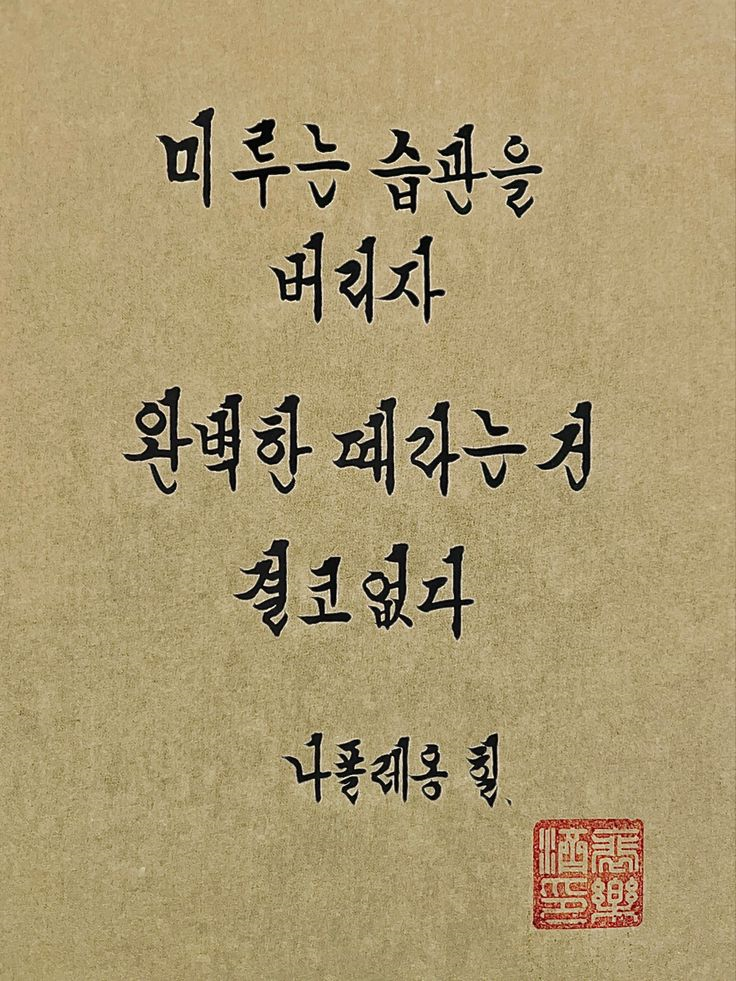 미루는 습관을
버리자
완벽한 때라는건
결코없다
나폴레옹 힐.